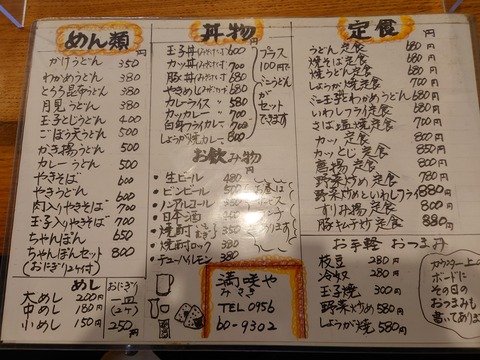 めん類
円
かけうどん 350
わかめうどん 380
とろろ昆布うどん 380
月見うどん 380
玉子とじうどん 400
ごぼう天うどん 500
かき揚うどん 500
カレーうどん 500
やきそば 600
やきうどん 600
肉入りやきそば 700
玉子入りやきそば 700
ちゃんぽん 650
ちゃんぽんセット 800
(おにぎり2ケ付)
めし
大めし 200円
中めし 180円
小めし 150円
おにぎり
一皿
(2ケ)
250円
丼物
玉子丼 600円
カツ丼 700
豚丼 680
やきめし 580
カレーライス 580
カツカレー 700
白身フライカレー 700
しょうが焼カレー 800
プラス
100円で
ミニうどん
が
セット
できます
お飲み物
・生ビール 480
・ビンビール 550
・ノンアルコール 350
・日本酒
・焼酎
・焼酎ロック 380
・チューハイレモン 380
満咲や
みさき
TEL 0956
60-9302
定食
円
うどん定食 680
焼そば定食 680
焼うどん定食 680
しょうが焼定食 700
ミニ玉丼とわかめうどん 680
いわしフライ定食 680
さば塩焼定食 780
カツ定食 800
カツとじ定食 850
唐揚定食 780
野菜炒め定食 780
野菜炒めといわしフライ 880
すりみ揚定食 800
豚キムチ炒定食 880
お手軽おつまみ
枝豆 280円
冷奴 280円
玉子焼 300円
野菜炒め 580円
しょうが焼 580円
カウンター上の
ボードに
その日の
おつまみも
書いてあります